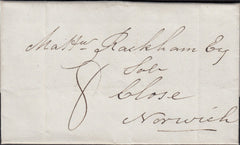 Matthw Rackham Esq
Solr
8 Close
Norwich